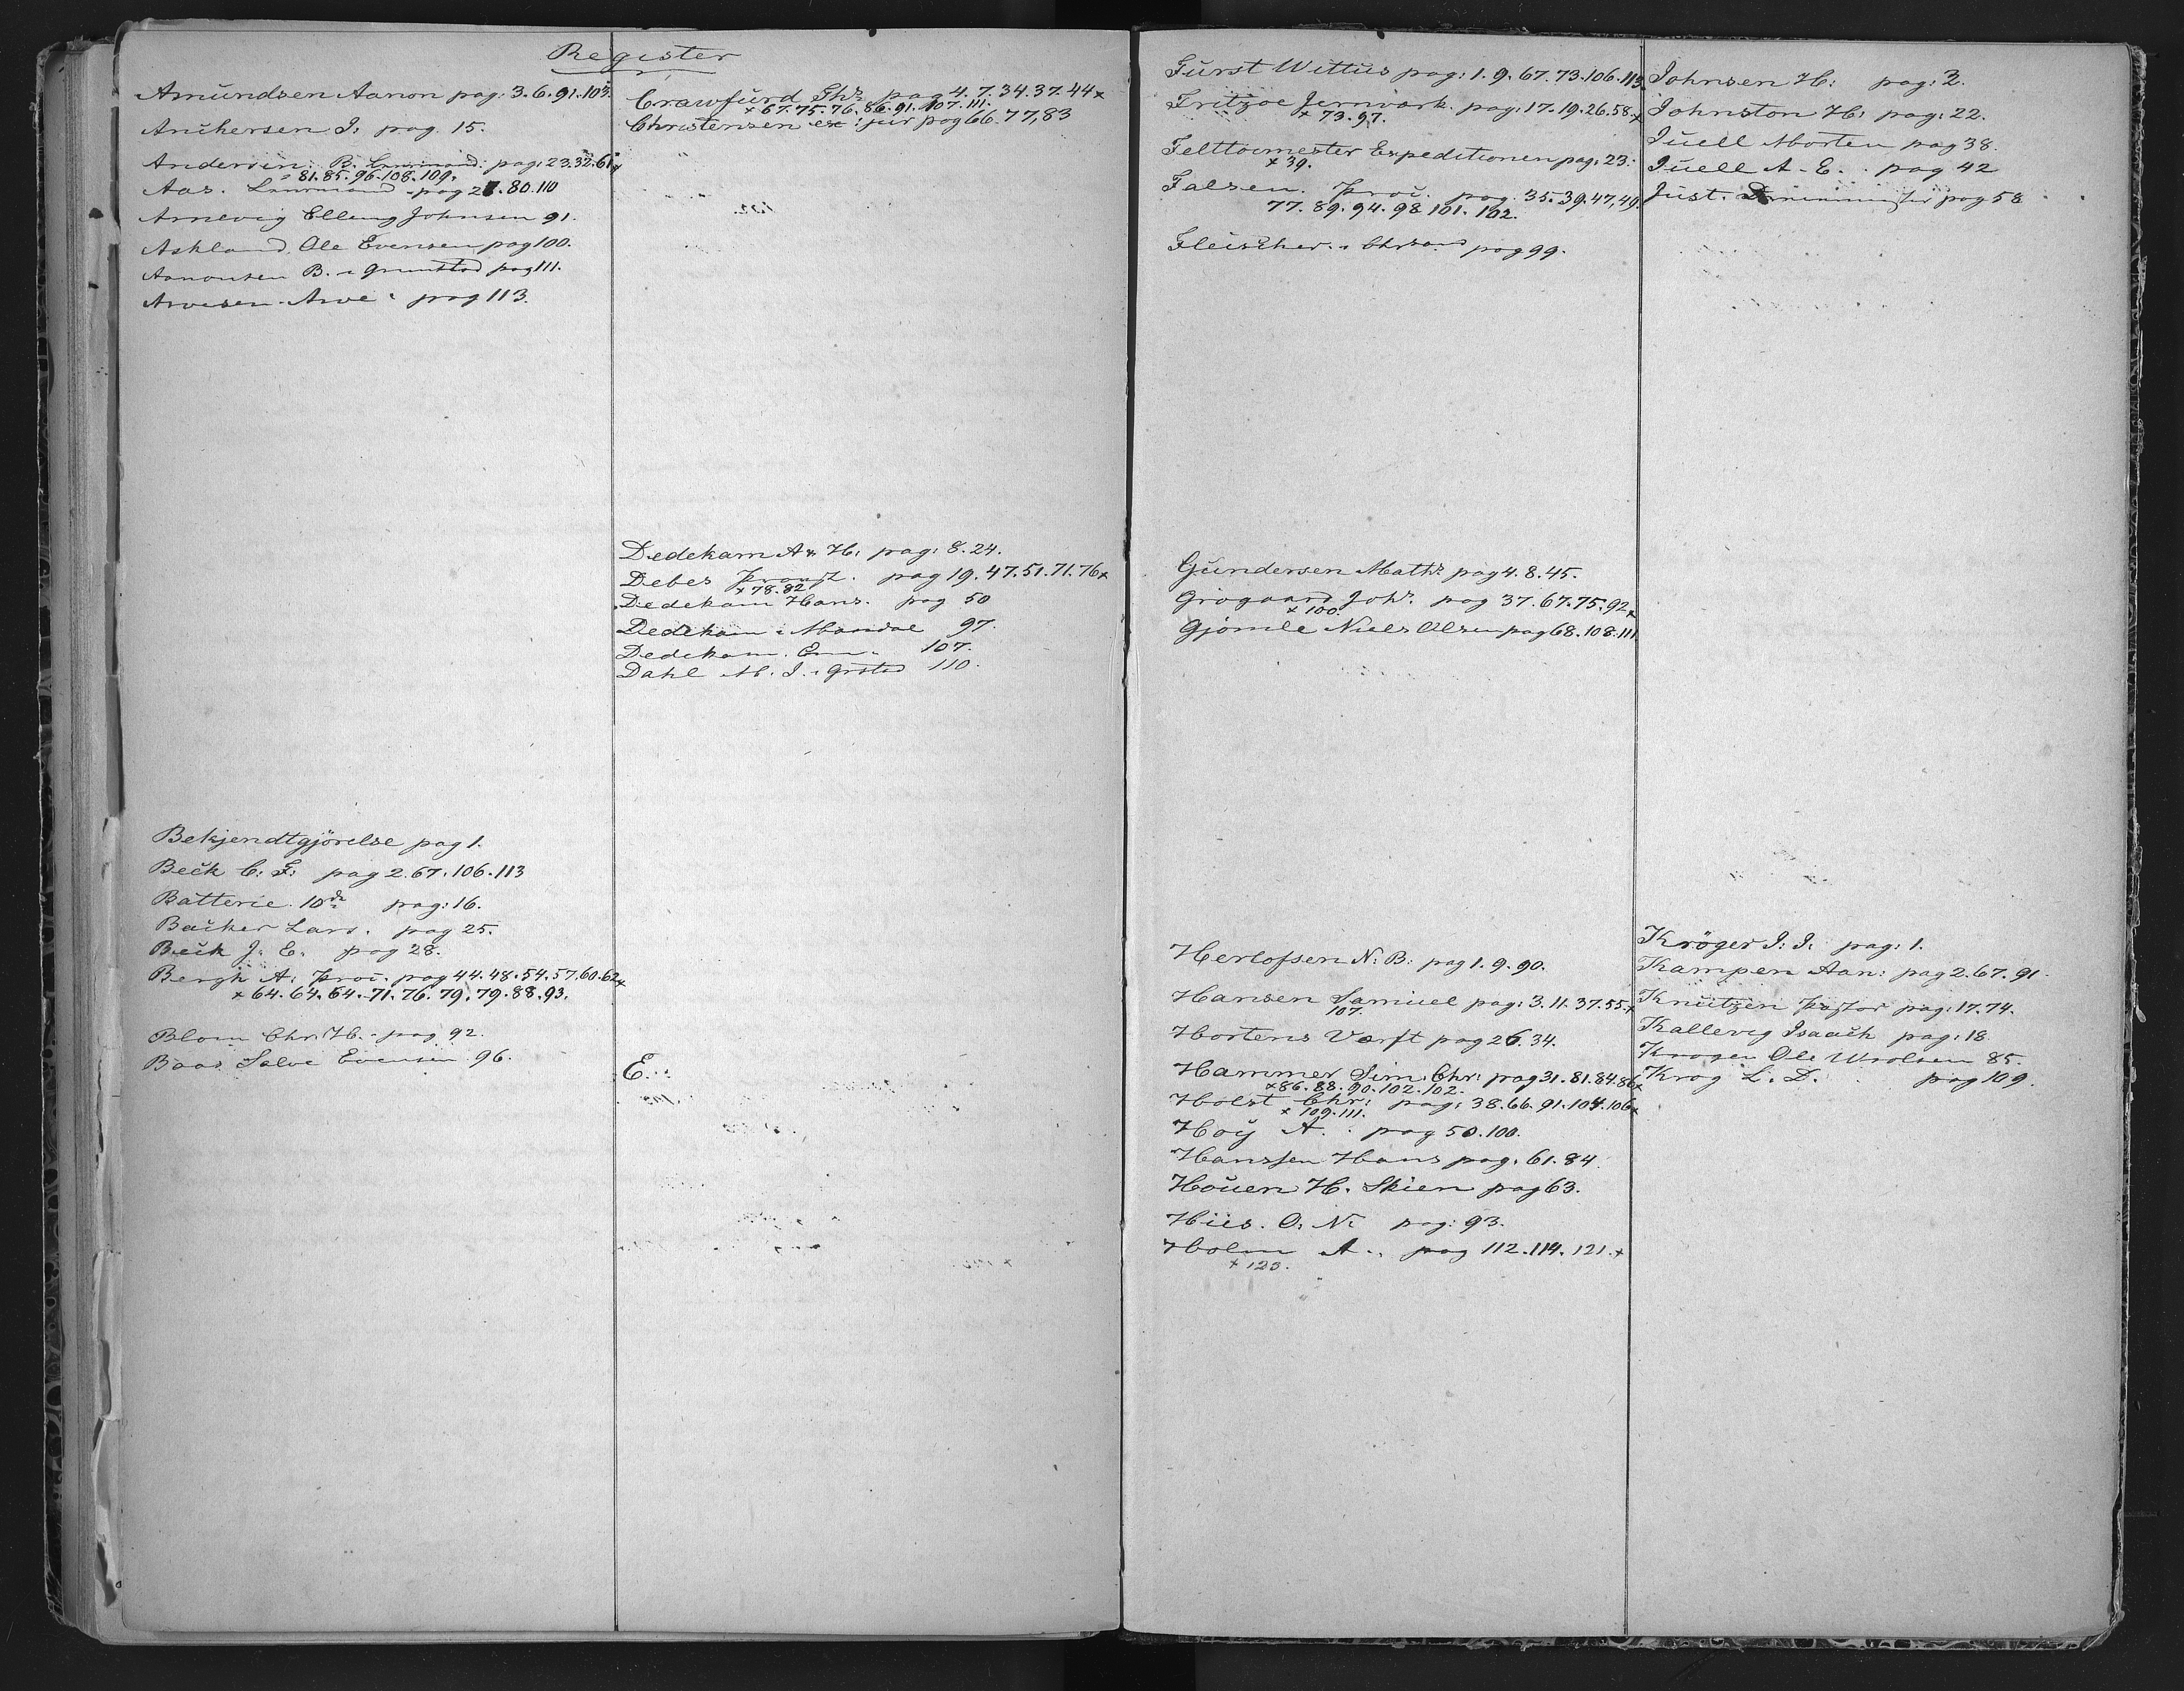 Register
Amundsen Aanon pag: 3.6.91.103.
Anchersen J: pag. 15.
Andersen. B. pag: 23.32.61 x
" 81.85.96.108.109.
Aas. pag 27.80.110
Arnevig Elling Johnsen 91.
Askland. Ole Evensen pag 100.
Aanonsen B. Grimstad pag 111.
Arvesen. Arve. pag 113.
Bekjendtgjörelse pag 1.
Beck C: F: pag 2.67.106.113
Batterie 10de pag: 16.
Backer Lars. pag 25.
Beck J. E. pag 28.
Bergh A: Proc. pag 44.48.54.57.60.62 x
x 64.64.64.71.76.79.79.88.93.
Blom Chr. H. pag 92.
Baas Salve Evensen 96.
Crawfurd Ths pag 4.7.34.37.44 x
x 67.75.76.86.91.107.111.
Christensen ex: jur pag 66.77,83
Dedekam A & H: pag: 8.24.
Debes Proust. pag 19.47.51.71.76 x
x 78.82.
Dedekam Hans. pag 50
Dedekam Mandal 97.
Dedekam. 107.
Dahl M. J. Grstad 110.
E.
Fürst Wittus pag: 1.9.67.73.106.113.
Fritzoe Jernværk. pag: 17.19.26.58. x
x 73.97.
Felttoimester Expeditionen pag: 23.
x 39.
Falsen. Proc. pag. 35.39.47,49.
77.89.94.98.101.102.
Fleischer. Chrsand pag 99.
Gundersen Maths pag 4.8.45.
Grogaard Johs. pag 37.67.75.92 x
x 100.
Gjömle Niels Olsen pag 68.108.111
Herlofsen N: B: pag 1.9.90.
Hansen Samuel pag: 3.11.37.55. x
107.
Hortens Værft pag 26.34.
Hammer Sim. Chr: pag 31.81.84.86 x
x 86.88.90.102.102.
Holst Chr: pag: 38.66.91.104.106 x
x 109.111.
Hoy A. pag 50.100.
Hanssen Hans pag. 61.84.
Houen H. Skien pag 63.
Hies. O: N: pag: 93.
Holm A. pag 112.114.121. x
x 123.
Johnsen H: pag: 2.
Johnston H: pag: 22.
Juell Morten pag 38.
Juell A. E. pag 42
Just. pag 58
Kröger J: J: pag: 1.
Kampen Aan: pag 2.67.91.
Knutzen Pastor pag: 17.74.
Kallevig Isaach pag: 18
Krogen Ole Wrolsen 85.
Krog L. D. pag 109.